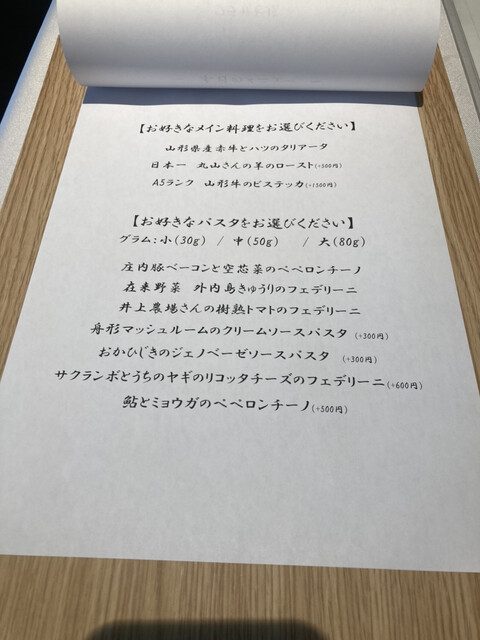 【お好きなメイン料理をお選びください】
山形県産赤牛とハツのタリアータ
日本一 丸山さんの羊のロースト(+500円)
A5ランク 山形牛のビステッカ(+1500円)
【お好きなパスタをお選びください】
グラム:小(30g) / 中(50g) / 大(80g)
庄内豚ベーコンと空芯菜のペペロンチーノ
在来野菜 外内島きゅうりのフェデリーニ
井上農場さんの樹熟トマトのフェデリーニ
舟形マッシュルームのクリームソースパスタ (+300円)
おかひじきのジェノベーゼソースパスタ (+300円)
サクランボとうちのヤギのリコッタチーズのフェデリーニ(+600円)
鮎とミョウガのペペロンチーノ(+500円)